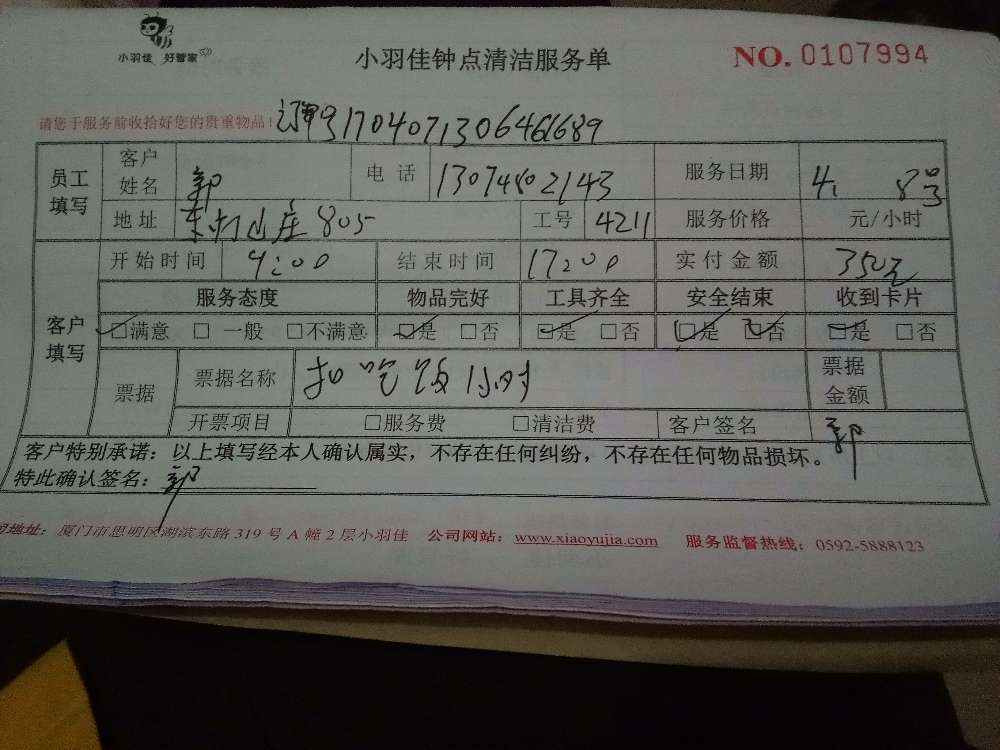 小羽佳 好管家
小羽佳钟点清洁服务单
NO. 0107994
请您于服务前收拾好您的贵重物品!
员工填写 客户姓名 郭 电话 13074802143 服务日期 4 8号
地址 山庄805 工号 4211 服务价格 元/小时
客户填写 开始时间 9:00 结束时间 17:00 实付金额 350元
服务态度 物品完好 工具齐全 安全结束 收到卡片
☑满意 □ 一般 □不满意 ☑是 □否 ☑是 □否 ☑是 ☑否 ☑是 □否
票据 票据名称 扣吃饭1小时 票据金额
开票项目 □服务费 □清洁费 客户签名 郭
客户特别承诺:以上填写经本人确认属实,不存在任何纠纷,不存在任何物品损坏。
特此确认签名:郭
司地址:厦门市思明区湖滨东路 319 号 A 幢 2 层小羽佳 公司网站:www.xiaoyujia.com 服务监督热线:0592-5888123